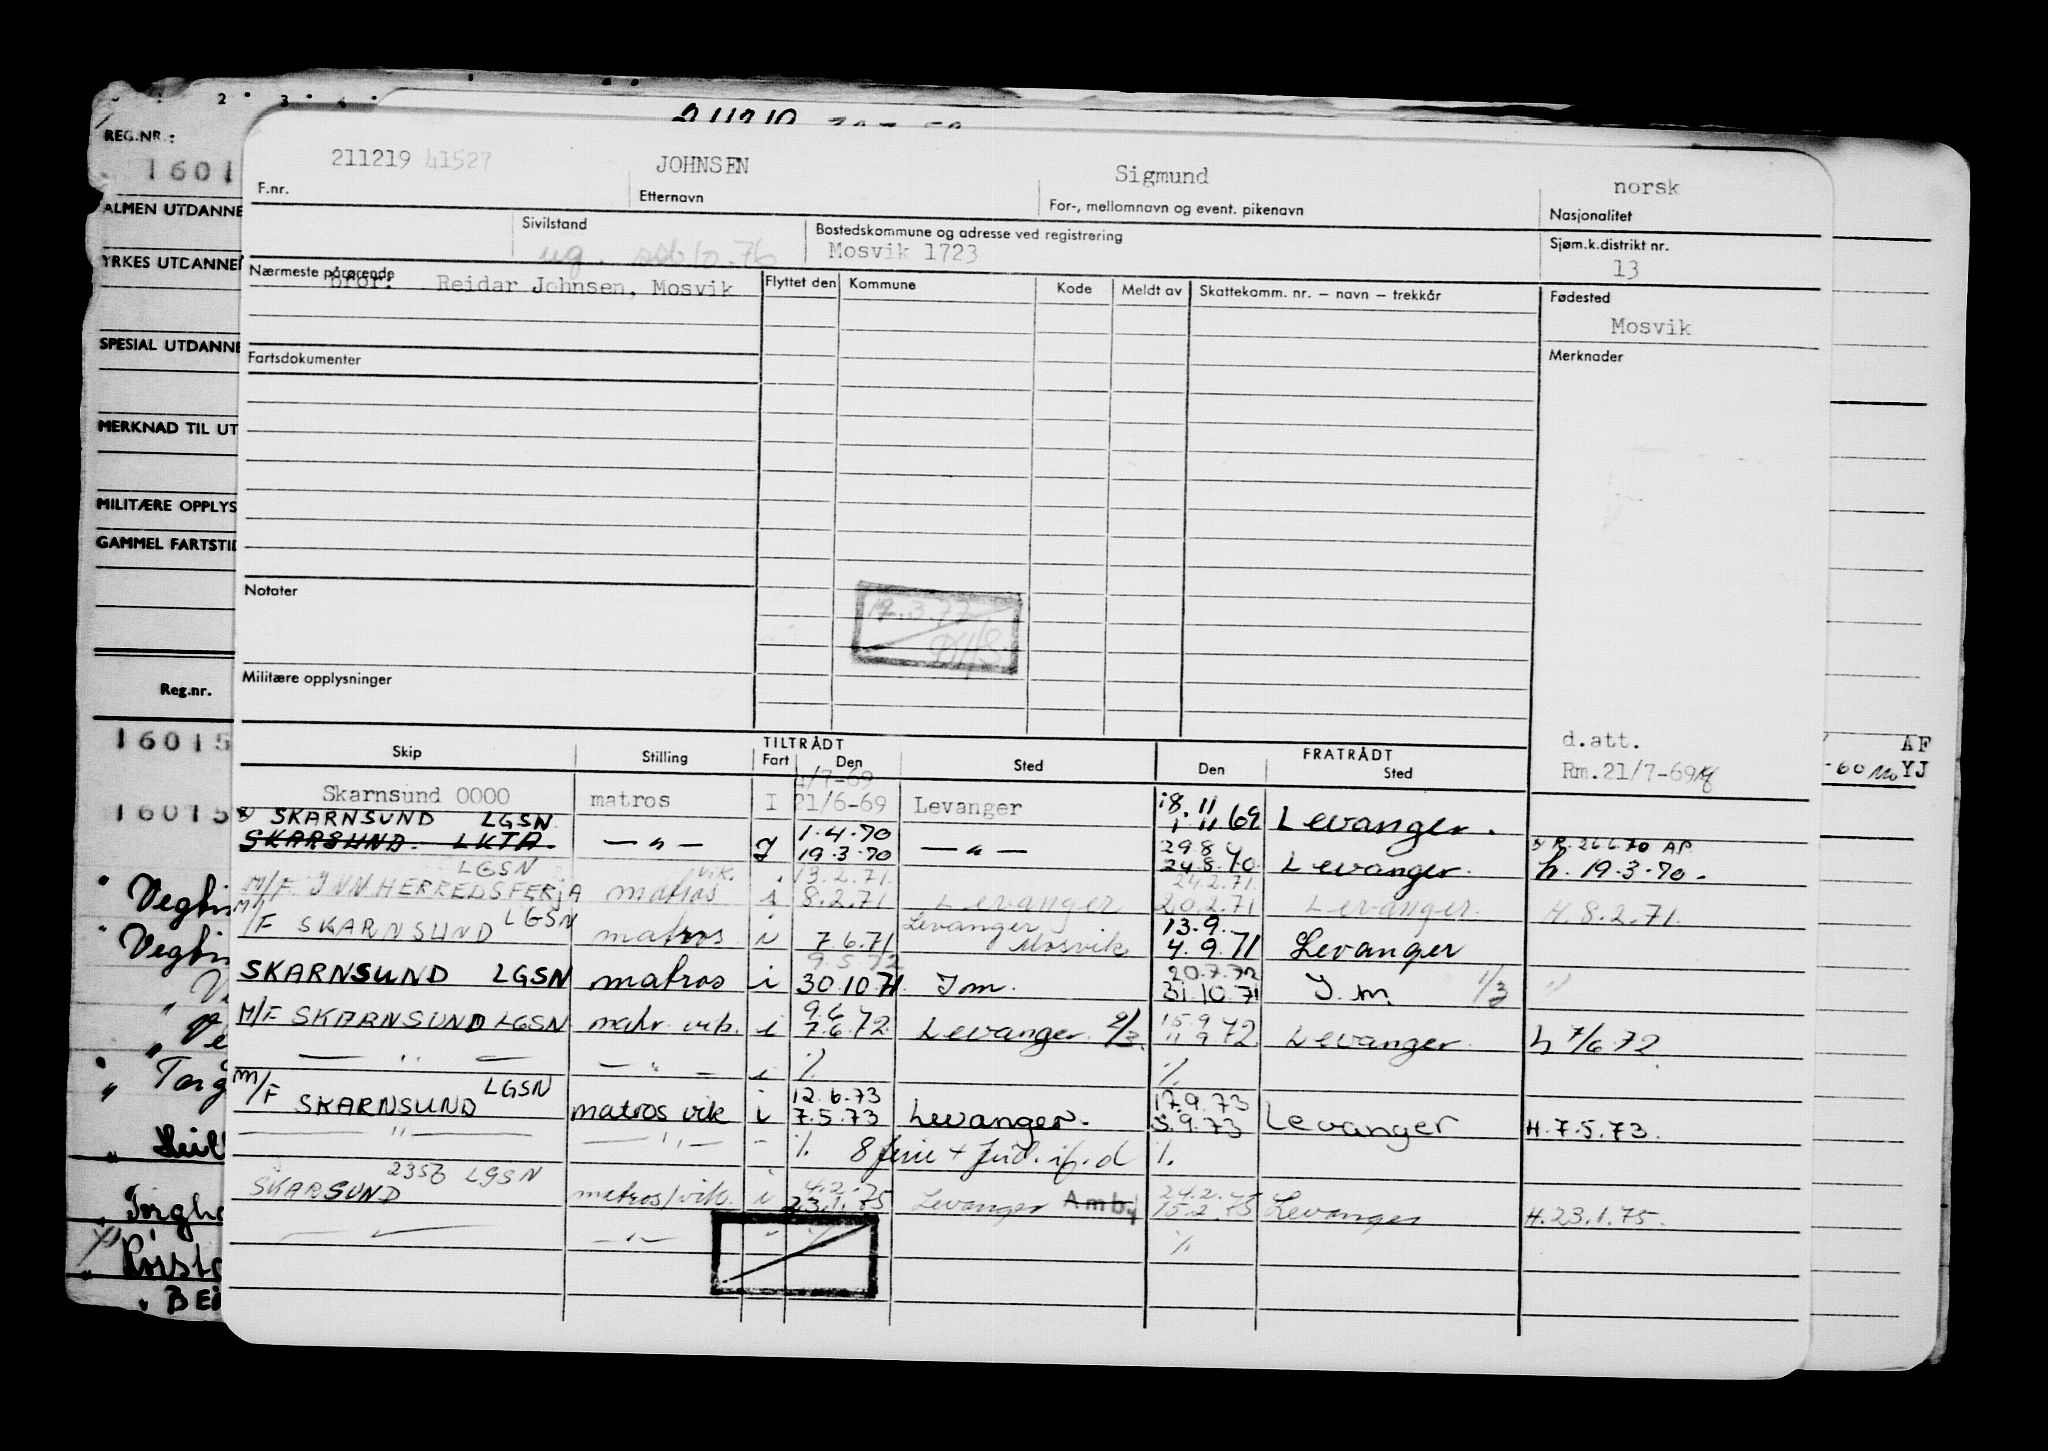 2 · 3 · 4 ·
211219
REG.NR.:
1601
ALMEN UTDANNE
YRKES UTDANNE
SPESIAL UTDANNE
MERKNAD TIL UT
MILITÆRE OPPLYS
GAMMEL FARTSTID
Reg.nr.
16015
16015
211219 41527 JOHNSEN Sigmund norsk
F.nr. Etternavn For-, mellomnavn og event. pikenavn Nasjonalitet
Sivilstand Bostedskommune og adresse ved registrering Sjøm.k.distrikt nr.
ug. Mosvik 1723 13
Nærmeste pårørende Flyttet den Kommune Kode Meldt av Skattekomm. nr. – navn – trekkår Fødested
bror: Reidar Johnsen, Mosvik Mosvik
Fartsdokumenter Merknader
Notater
Militære opplysninger
d.att.
Rm.21/7-69
AF
YJ
TILTRÅDT FRATRÅDT
Skip Stilling Fart Den Sted Den Sted
/7-69
Skarnsund 0000 matros I 21/6-69 Levanger 18.11 1.11 69 Levanger.
SKARNSUND LGSN 1.4.70 29.8 R. 26.6.70 AP.
SKARSUND. LKTA — " — I 19.3.70 — " — 24.8.70 Levanger. h. 19.3.70.
LGSN vik. 13.2.71 24.2.71
M/F INNHERREDSFERJA matros i 8.2.71 Levanger 20.2.71 Levanger. H. 8.2.71.
M/F SKARNSUND LGSN matros i 7.6.71 Levanger Mosvik 13.9. 4.9.71 Levanger
9.5.72 20.7.72
SKARNSUND LGSN matros i 30.10.71 I m. 31.10.71 I. m. 1/3 "
9.6 15.9
M/F SKARNSUND LGSN matr. vik. i 7.6.72 Levanger. 2/3. 11.9.72 Levanger. h 7/6.72
— " — — " — i %. %.
LGSN 12.6.73 17.9.73
M/F SKARNSUND matros vik i 7.5.73 Levanger. 5.9.73 Levanger H. 7.5.73.
— " — — " — - %. 8 ferie + frid. if. d %.
2356 LGSN 4.2. 24.2.
SKARSUND matros/vik. i 23.1.75 Levanger Amb. 15.2.75 Levanger H. 23.1.75.
— " — " %.